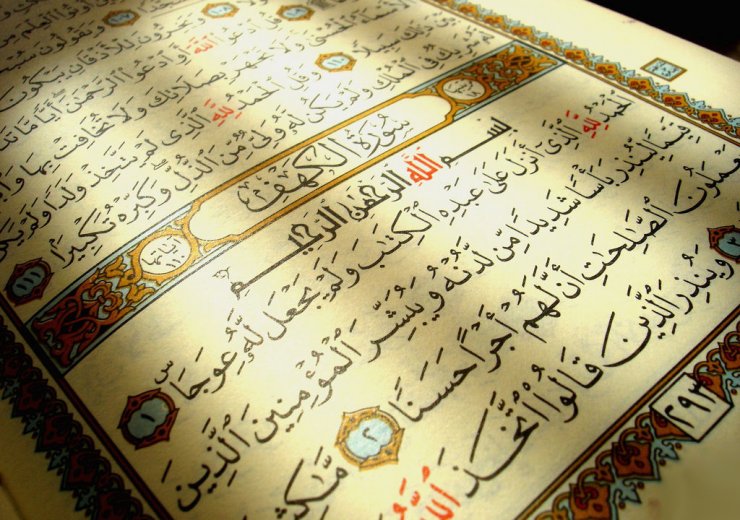 وَيَقُولُونَ
وَيَخِرُّونَ لِلْأَذْقَانِ يَبْكُونَ
ٱدْعُوا۟ ٱللَّهَ أَوِ ٱدْعُوا۟ ٱلرَّحْمَٰنَ أَيًّا مَّا
وَلَا تَجْهَرْ بِصَلَاتِكَ وَلَا تُخَافِتْ بِهَا
بَيْنَ ذَٰلِكَ سَبِيلًا ١١٠ وَقُلِ ٱلْحَمْدُ لِلَّهِ ٱلَّذِى لَمْ يَتَّخِذْ وَلَدًا وَلَمْ
شَرِيكٌ فِى ٱلْمُلْكِ وَلَمْ يَكُن لَّهُۥ وَلِىٌّ مِّنَ ٱلذُّلِّ وَكَبِّرْهُ تَكْبِيرًۢا ١١١
سُورَةُ ٱلْكَهْفِ آياتها ١١٠
بِسْمِ ٱللَّهِ ٱلرَّحْمَٰنِ ٱلرَّحِيمِ
ٱلْحَمْدُ لِلَّهِ ٱلَّذِىٓ أَنزَلَ عَلَىٰ عَبْدِهِ ٱلْكِتَٰبَ وَلَمْ يَجْعَل لَّهُۥ عِوَجَا ۜ ١
قَيِّمًا لِّيُنذِرَ بَأْسًا شَدِيدًا مِّن لَّدُنْهُ وَيُبَشِّرَ ٱلْمُؤْمِنِينَ ٱلَّذِينَ
يَعْمَلُونَ ٱلصَّٰلِحَٰتِ أَنَّ لَهُمْ أَجْرًا حَسَنًا ٢ مَّٰكِثِ
٣ وَيُنذِرَ ٱلَّذِينَ قَالُوا۟ ٱتَّخَذَ ٱللَّهُ
٢٩٣